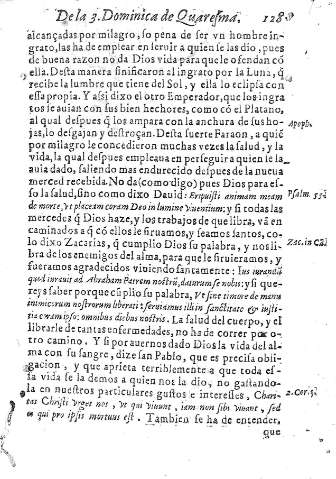 De la 3. Dominica de Quaresma. 128
alcançadas por milagro, so pena de ser vn hombre in-
grato, las ha de emplear en seruir a quien se las dio, pues
de buena razon no da Dios vida para que le ofendan cõ
ella. Desta manera sinificaron al ingrato por la Luna, q̃
recibe la lumbre que tiene del Sol, y ella lo eclipsa con
essa propia. Y assi dixo el otro Emperador, que los ingra
tos se auian con sus bien hechores, como cõ el Platano,
al qual despues q̃ los ampara con la anchura de sus ho-
jas, lo desgajan y destroçan. Desta suerte Faraon, a quiẽ
por milagro le concedieron muchas vezes la salud, y la
vida, la qual despues empleaua en perseguir a quien le
auia dado, saliendo mas endurecido despues de la nueua
merced recebida. No da (como digo) pues Dios para es-
so la salud, sino como dixo Dauid: Eripuisti animam meam
de morte, vt placeam coram Deo in lumine viuentium; y si todas las
mercedes q̃ Dios haze, y los trabajos de que libra, vã en
caminados a q̃ cõ ellos le siruamos, y seamos santos, co-
lo dixo Zacarias, q̃ cumplio Dios su palabra, y nos li-
bra de los enemigos del alma, para que le siruieramos, y
fueramos agradecidos viuiendo santamente: Ius iurandũ
quod iurauit ad Abraham Patrem nostrũ, daturum se nobis: y si que-
reys saber porque cũplio su palabra, Vt sine timore de manu
inimicorum nostrorum liberati: seruiamus illi in sanctitate & iusti-
tia coram ipso: omnibus diebus nostris. La salud del cuerpo, y el
librarle de tantas enfermedades, no ha de correr por o-
tro camino. Y si por auernos dado Dios la vida del al-
ma con su sangre, dize san Pablo, que es precisa obli-
gacion, y que aprieta terriblemente a que toda es-
sa vida se la demos a quien nos la dio, no gastando-
la en nuestros particulares gustos e interesses, Chari-
tas Christi vrget nos, vt qui viuunt, iam non sibi viuant, sed
ei qui pro ipsis mortuus est. Tambien se ha de entender,
que
Apopht.
Psalm. 55.
Zac. in Cã.
2. Cor. 5.